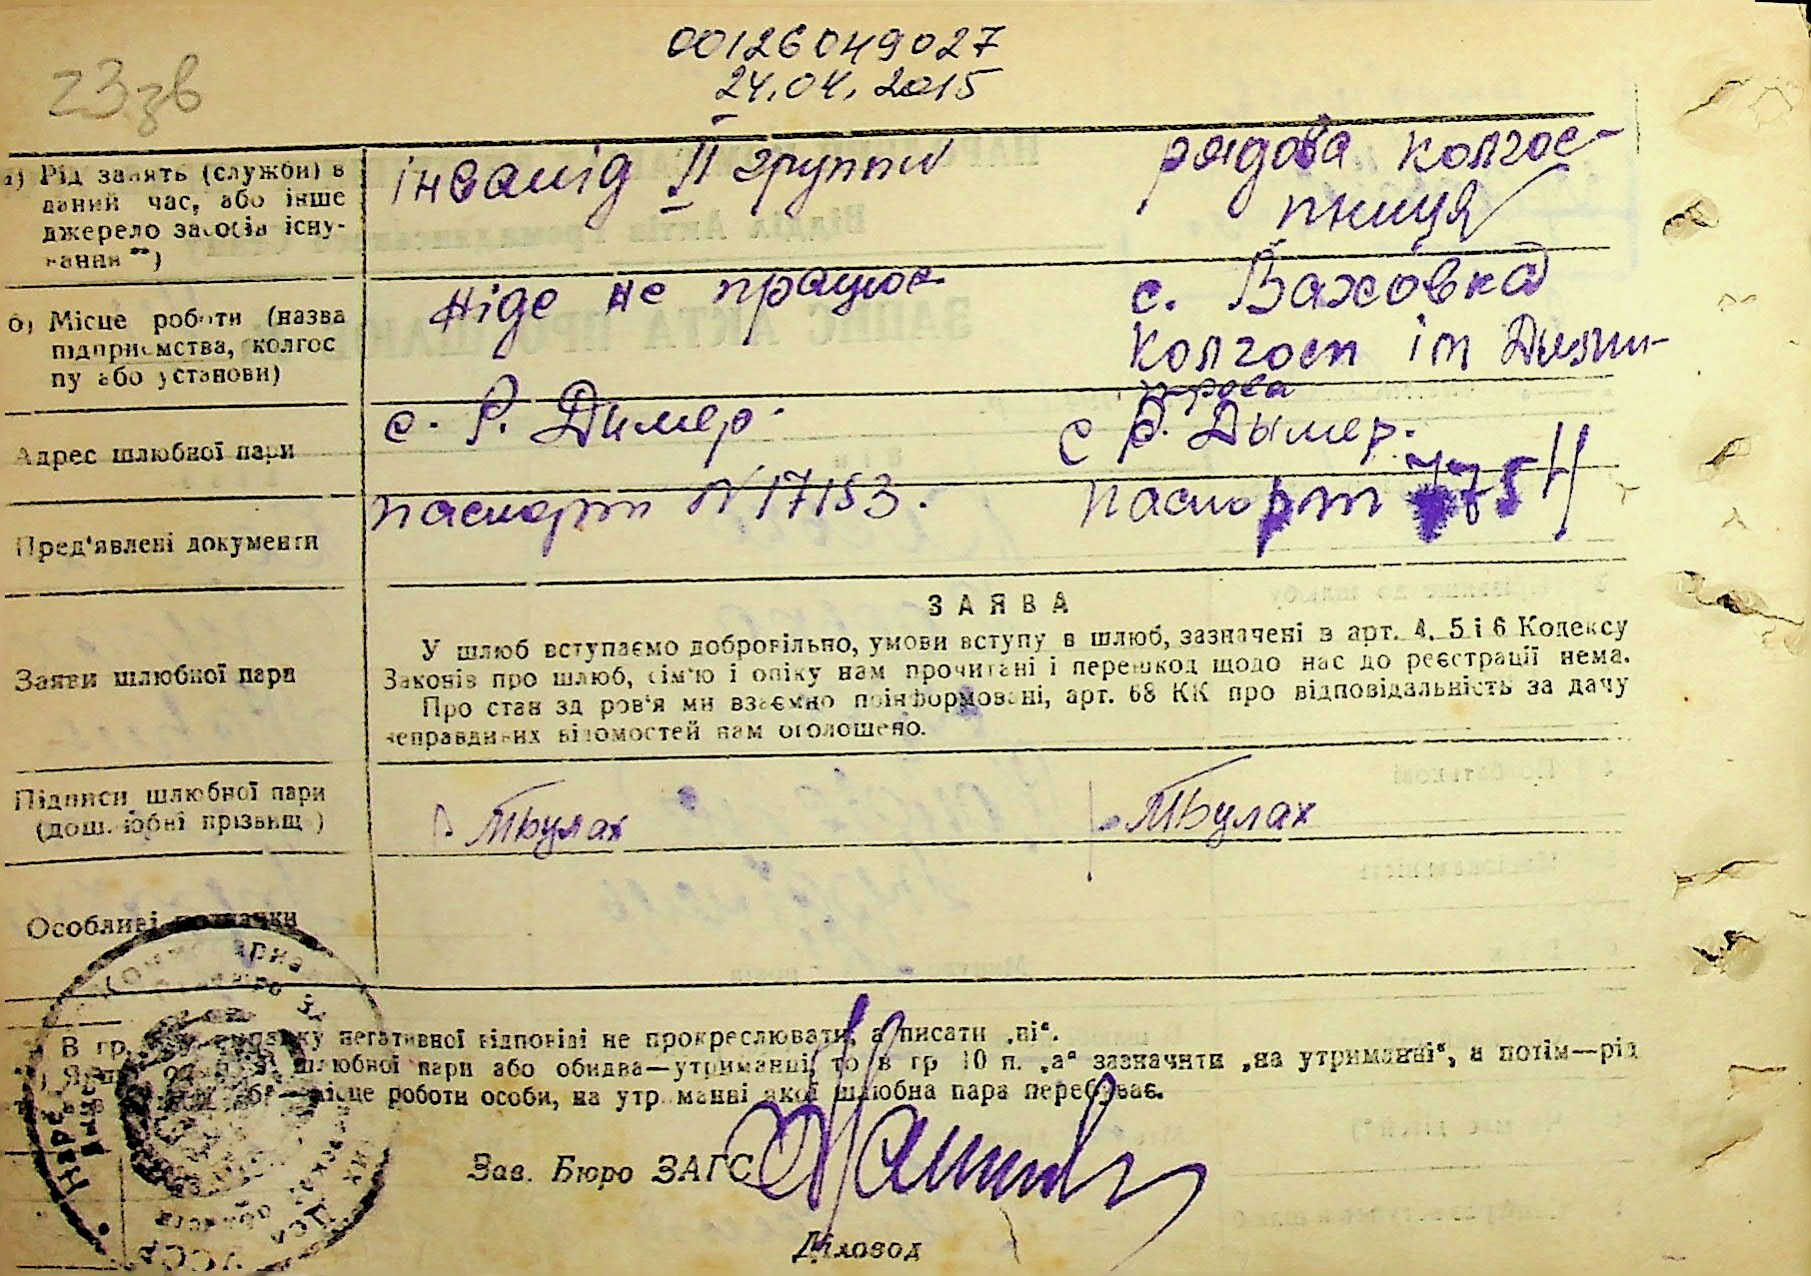 00126049027
24.04.2015
23зв
а) Рід занять (служби) в даний час, або інше джерело засобів існування **)
інвалід II группи
рядова колгос-
пниця
б) Місце роботи (назва підприємства, колгоспу або установи)
Ніде не працює
с.
Колгосп ім
Адрес шлюбної пари
с. Р. Димер.
с Р. Дымер.
Пред'явлені документи
паспорт N 17153.
паспорт
ЗАЯВА
Заяви шлюбної пари
У шлюб вступаємо добровільно, умови вступу в шлюб, зазначені в арт. 4, 5 і 6 Кодексу
Законів про шлюб, сім'ю і опіку нам прочитані і перешкод щодо нас до реєстрації нема.
Про стан здоров'я ми взаємно поінформовані, арт. 68 КК про відповідальність за дачу
неправдивих відомостей нам оголошено.
Підписи шлюбної пари
(дошлюбні прізвища)
Особливі позначки
В гр. негативної відповіді не прокреслювати, а писати „ні“.
шлюбної пари або обидва—утриманні, то в гр 10 п. „а“ зазначити „на утриманні“, а потім—рід
місце роботи особи, на утриманні якої шлюбна пара перебуває.
Зав. Бюро ЗАГС
Діловод